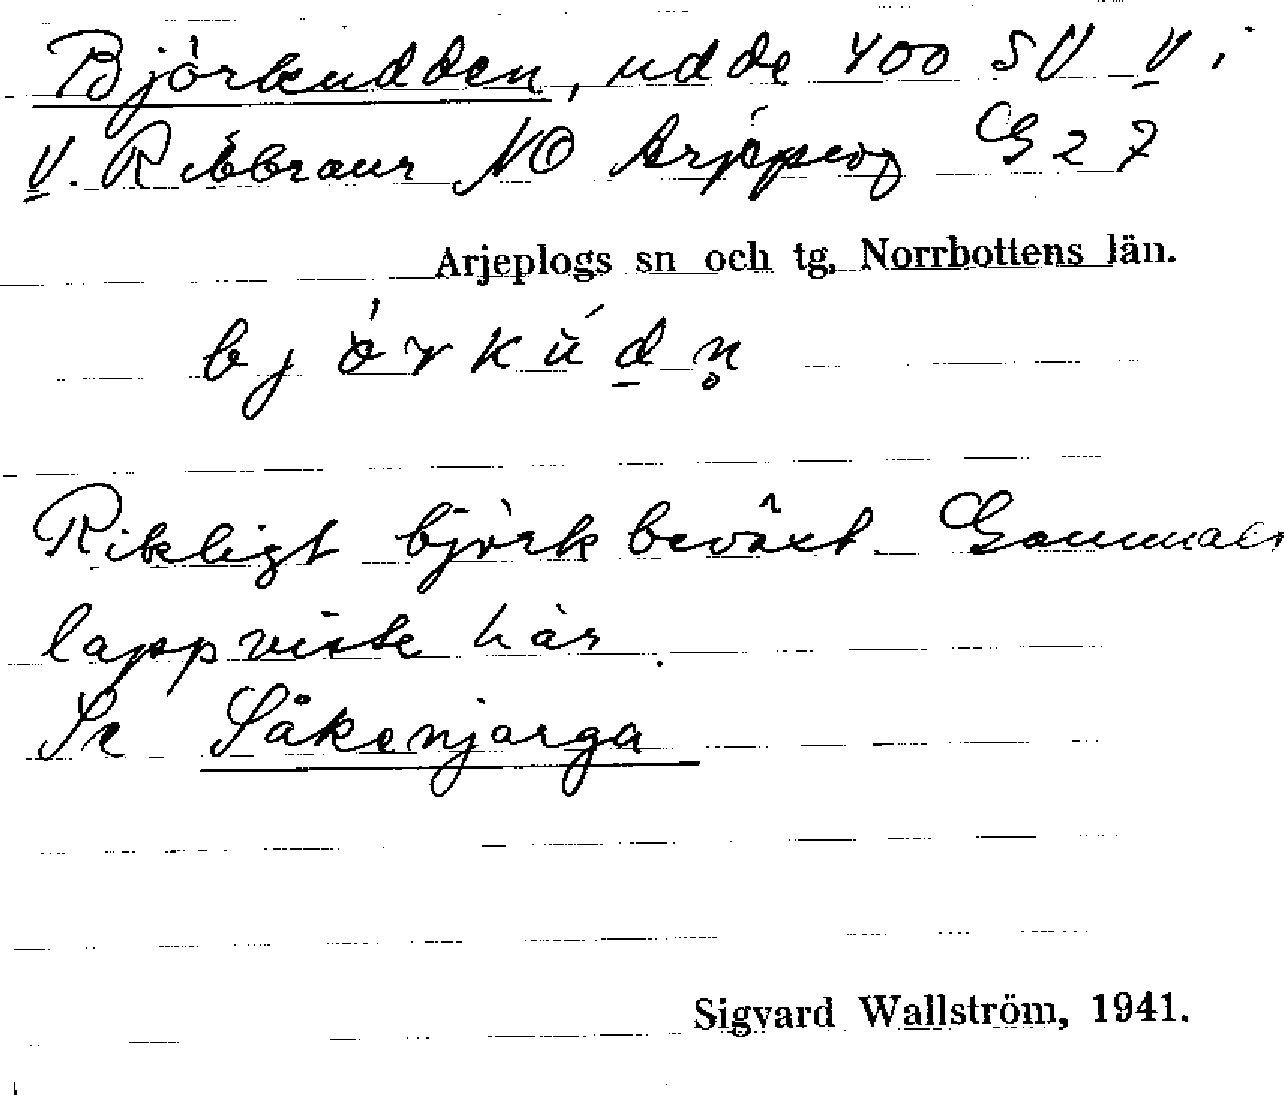 Björkudden, udde 400 SV V i
V. Ribbraur NO Arjeplog G 27
Arjeplogs sn och tg, Norrbottens län.
björkúdn̥
Rikligt björkbeväxt. Gammalt
lappviste här.
Se Såkenjarga
Sigvard Wallström, 1941.